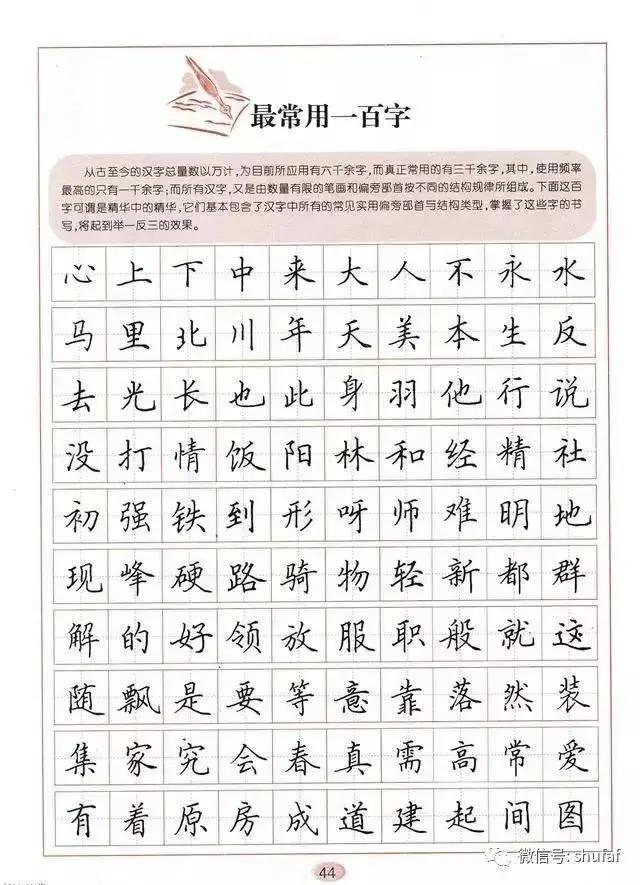 最常用一百字
从古至今的汉字总量数以万计,为目前所应用有六千余字,而真正常用的有三千余字,其中,使用频率
最高的只有一千余字;而所有汉字,又是由数量有限的笔画和偏旁部首按不同的结构规律所组成。下面这百
字可谓是精华中的精华,它们基本包含了汉字中所有的常见实用偏旁部首与结构类型,掌握了这些字的书
写,将起到举一反三的效果。
心上下中来大人不永水
马里北川年天美本生反
去光长也此身羽他行说
没打情饭阳林和经精社
初强铁到形呀师难明地
现峰硬路骑物轻新都群
解的好领放服职般就这
随飘是要等意靠落然装
集家究会春真需高常爱
有着原房成道建起间图
44
微信号: shufaf